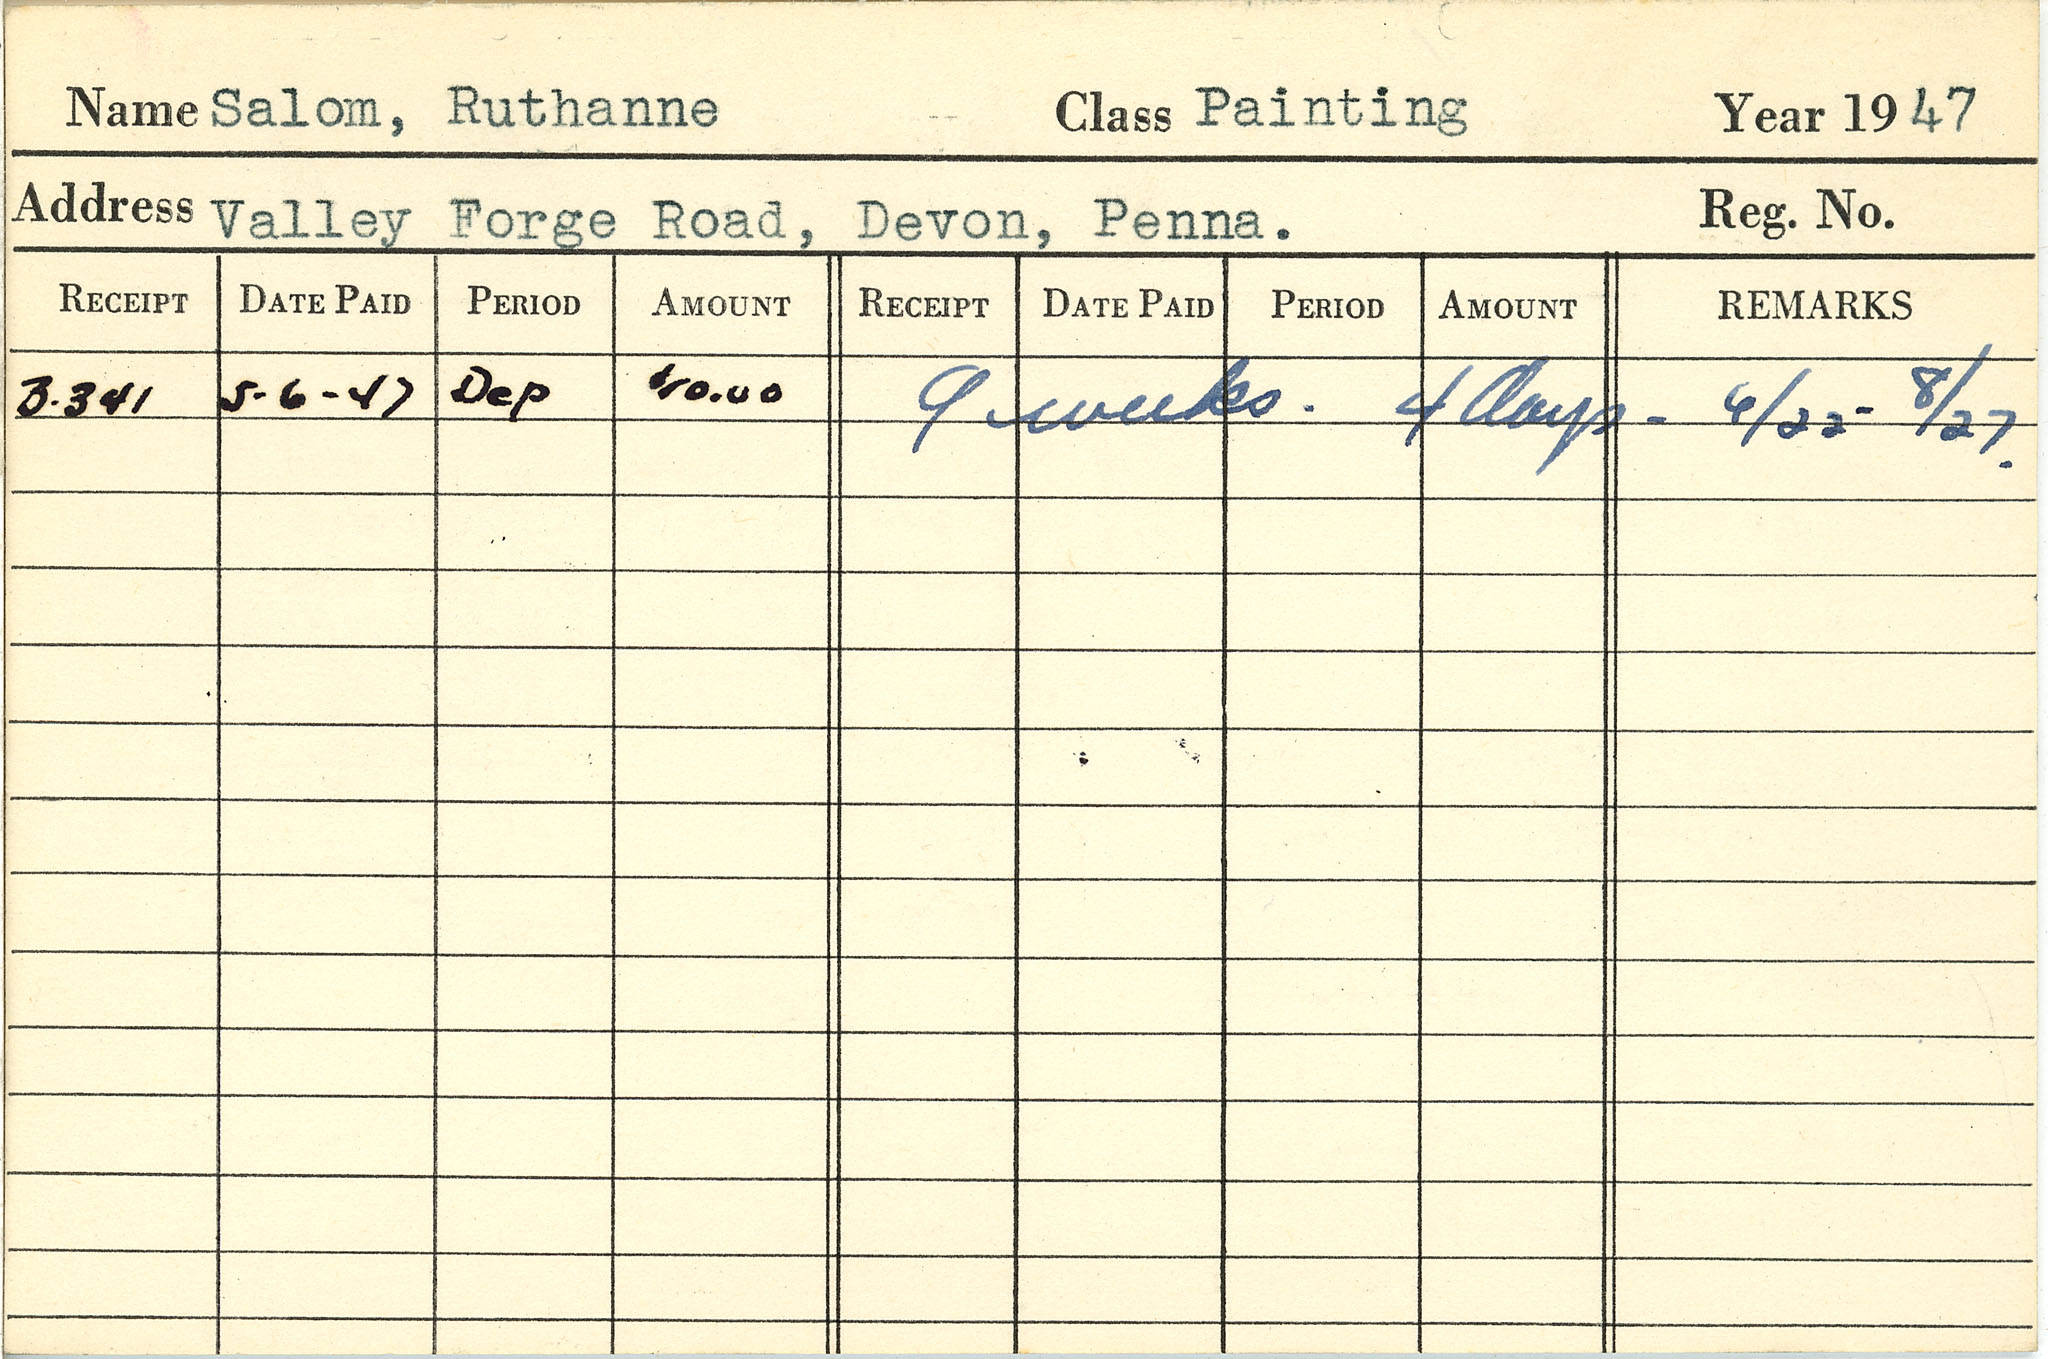 Name Salom, Ruthanne Class Painting Year 1947
Address Valley Forge Road, Devon, Penna. Reg. No.
RECEIPT DATE PAID PERIOD AMOUNT RECEIPT DATE PAID PERIOD AMOUNT REMARKS
3.341 5-6-47 Dep $10.00 9 weeks. 4 days - 6/22 - 8/27.